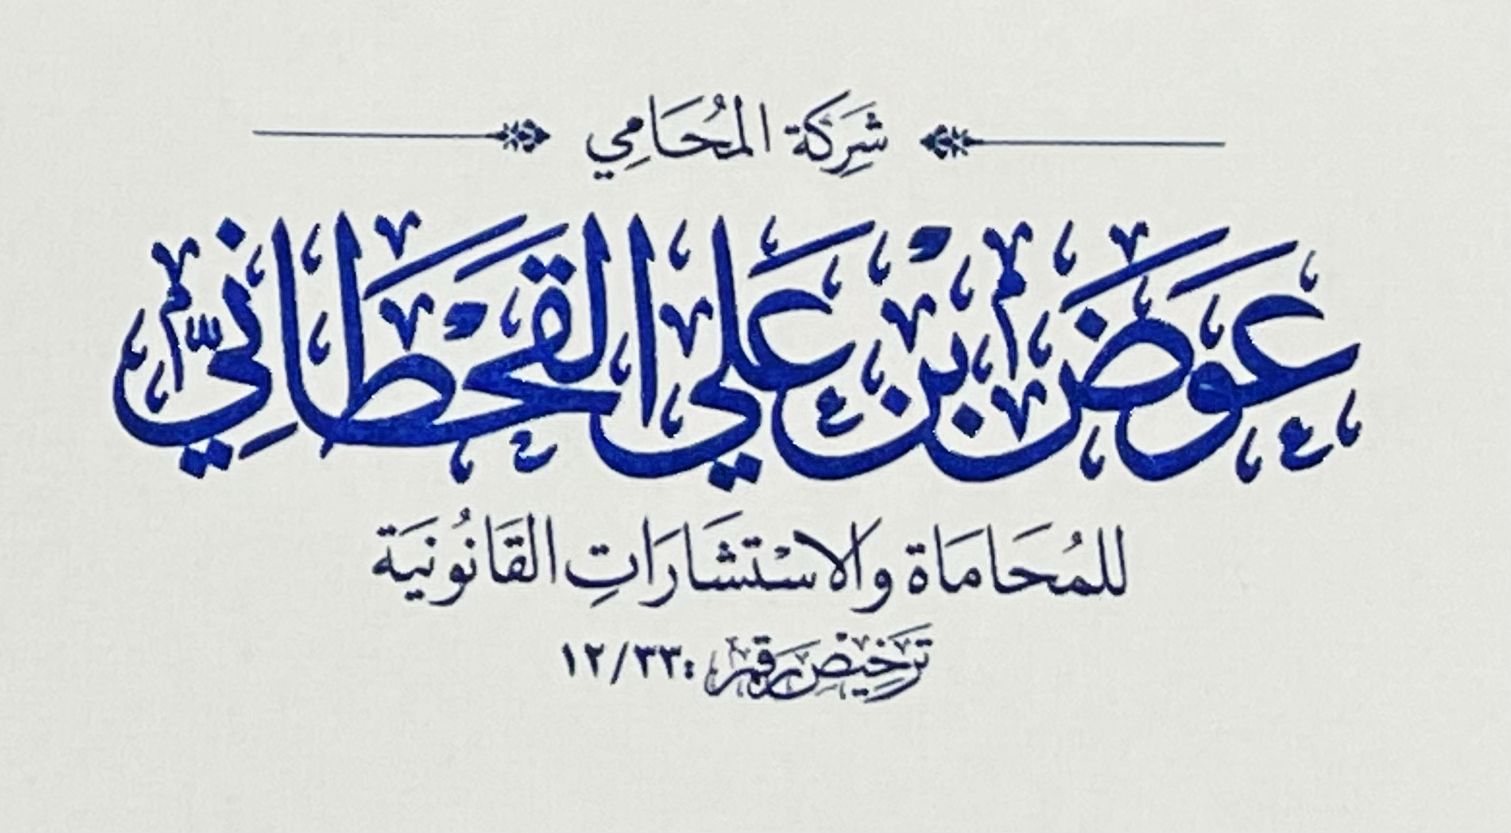 شَرِكَة المُحَامِي
عَوَض بْن عَلي القَحْطَانِيّ
للمُحَامَاة والاسْتشَارَاتِ القَانُونيَة
ترخيص رقم: ١٢/٣٣